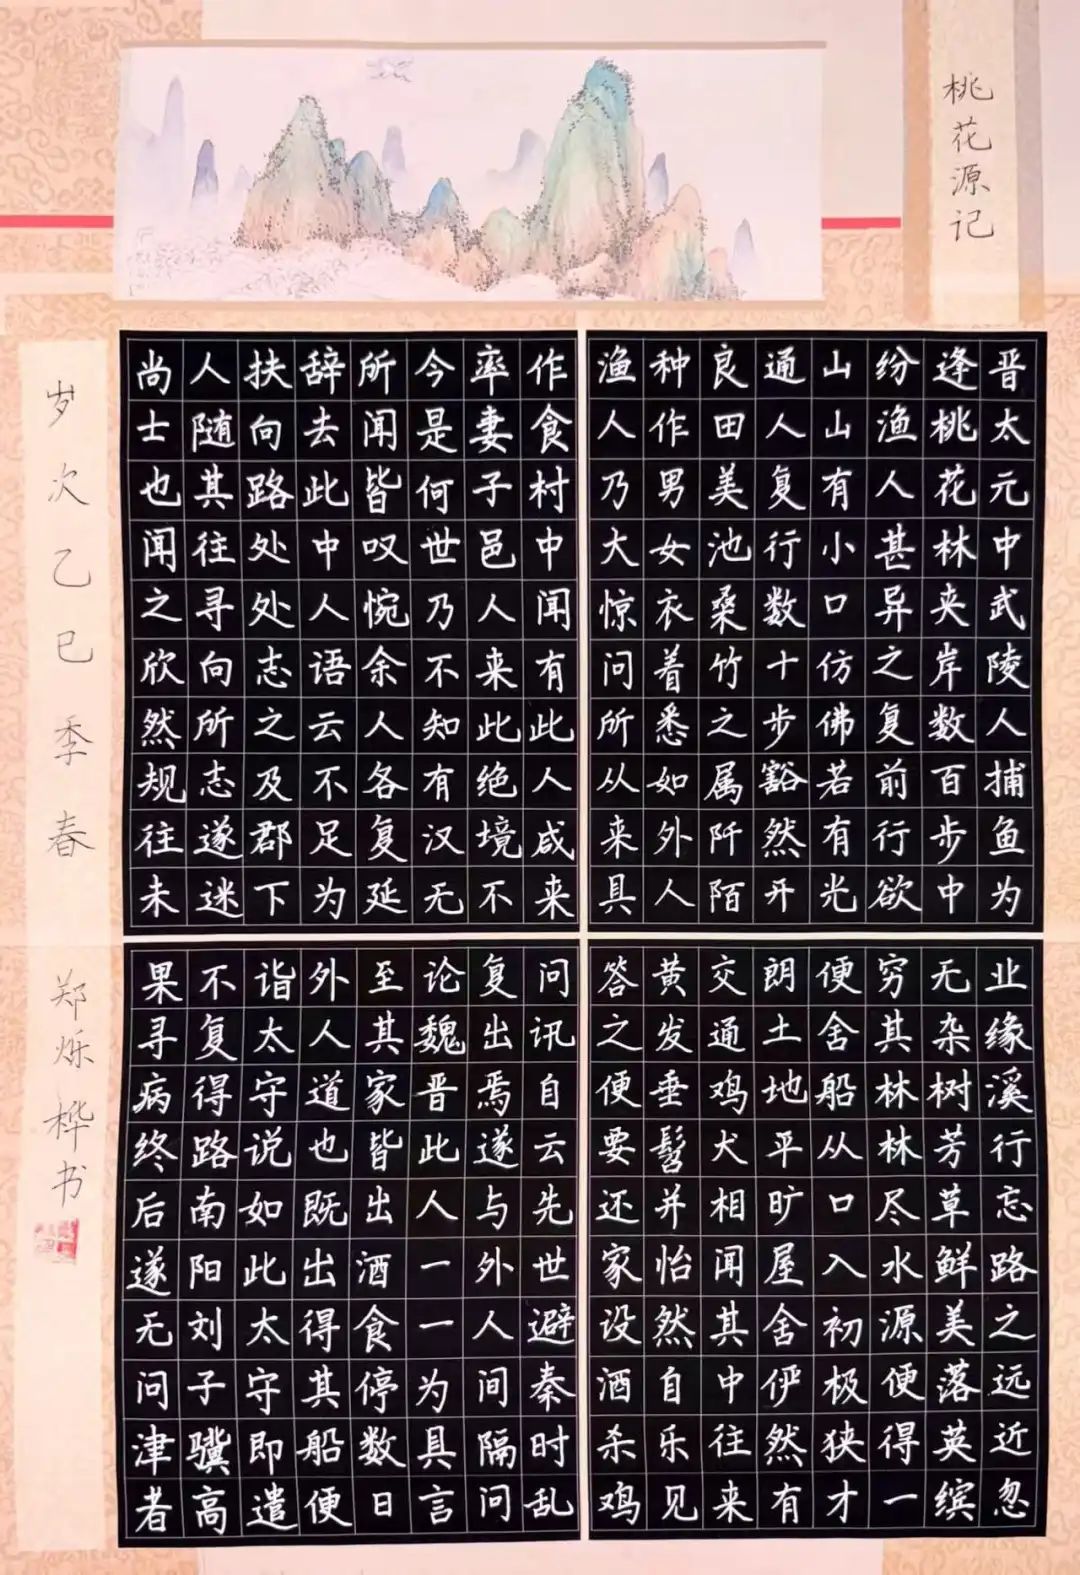 桃花源记
晋太元中武陵人捕鱼为业缘溪行忘路之远近忽
逢桃花林夹岸数百步中无杂树芳草鲜美落英缤
纷渔人甚异之复前行欲穷其林林尽水源便得一
山山有小口仿佛若有光便舍船从口入初极狭才
通人复行数十步豁然开朗土地平旷屋舍俨然有
良田美池桑竹之属阡陌交通鸡犬相闻其中往来
种作男女衣着悉如外人黄发垂髫并怡然自乐见
渔人乃大惊问所从来具答之便要还家设酒杀鸡
作食村中闻有此人咸来问讯自云先世避秦时乱
率妻子邑人来此绝境不复出焉遂与外人间隔问
今是何世乃不知有汉无论魏晋此人一一为具言
所闻皆叹惋余人各复延至其家皆出酒食停数日
辞去此中人语云不足为外人道也既出得其船便
扶向路处处志之及郡下诣太守说如此太守即遣
人随其往寻向所志遂迷不复得路南阳刘子骥高
尚士也闻之欣然规往未果寻病终后遂无问津者
岁次乙巳季春 郑烁桦书